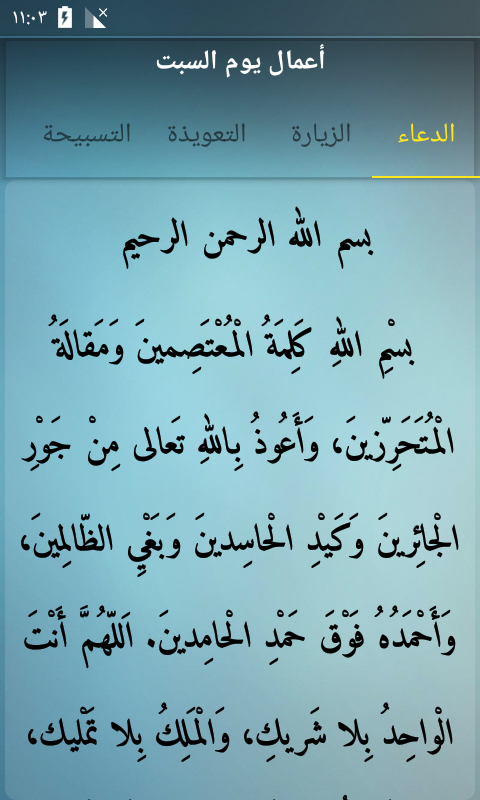 ١١:٠٣
أعمال يوم السبت
الدعاء الزيارة التعويذة التسبيحة
بسم الله الرحمن الرحيم
بِسْمِ اللهِ كَلِمَةُ الْمُعْتَصِمينَ وَمَقالَةُ
الْمُتَحَرِّزينَ، وَأَعُوذُ بِاللهِ تَعالى مِنْ جَوْرِ
الْجائِرينَ وَكَيْدِ الْحاسِدينَ وَبَغْيِ الظّالِمينَ،
وَأَحْمَدُهُ فَوْقَ حَمْدِ الْحامِدينَ. اَللّهُمَّ أَنْتَ
الْواحِدُ بِلا شَريكِ، وَالْمَلِكُ بِلا تَمْليك،